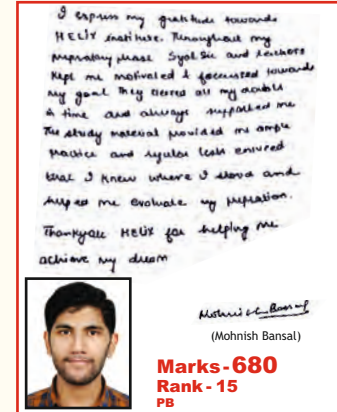 I express my gratitude towards
HELIX institute. Throughout my
prepratory phase Syal Sir and teachers
kept me motivated & focussed towards
my goal They cleared all my doubts
in time and always supported me
The study material provided me ample
practice and regular tests ensured
that I knew where I stood and
helped me evaluate my prepration.
Thankyou HELIX for helping me
achieve my dream
Mohnish Bansal
(Mohnish Bansal)
Marks-680
Rank - 15
PB